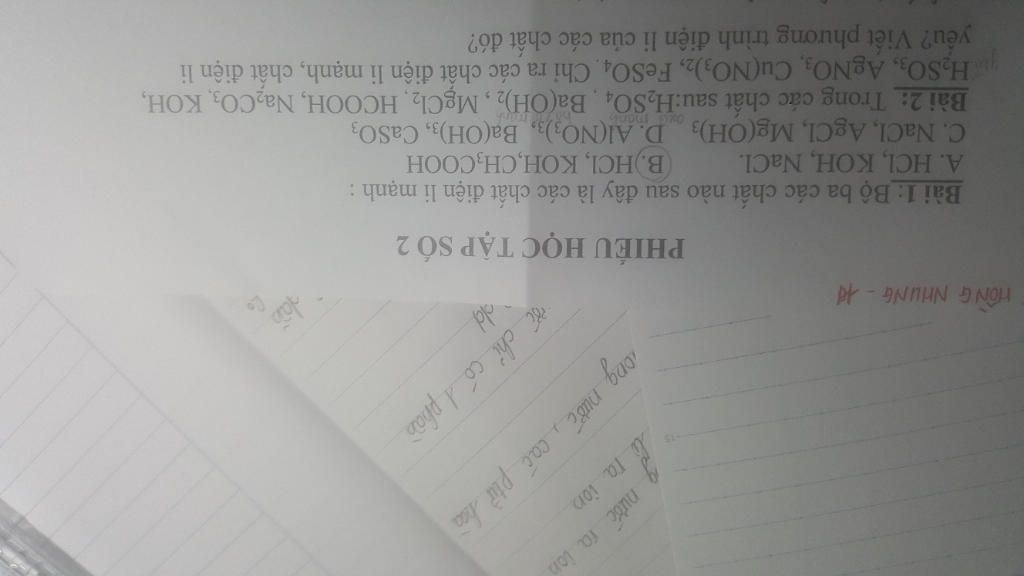 HỒNG NHUNG - 1d
PHIẾU HỌC TẬP SỐ 2
Bài 1: Bộ ba các chất nào sau đây là các chất điện li mạnh :
A. HCl, KOH, NaCl. B. HCl, KOH, CH₃COOH
C. NaCl, AgCl, Mg(OH)₃ D. Al(NO₃)₃, Ba(OH)₃, CaSO₃
Bài 2: Trong các chất sau:H₂SO₄ , Ba(OH)₂ , MgCl₂, HCOOH, Na₂CO₃, KOH,
H₂SO₃, AgNO₃, Cu(NO₃)₂, FeSO₄ . Chỉ ra các chất điện li mạnh, chất điện li
yếu? Viết phương trình điện li của các chất đó?
nước ra ion
li ra ion
nước, các ptử hoà
chỉ có 1 phần